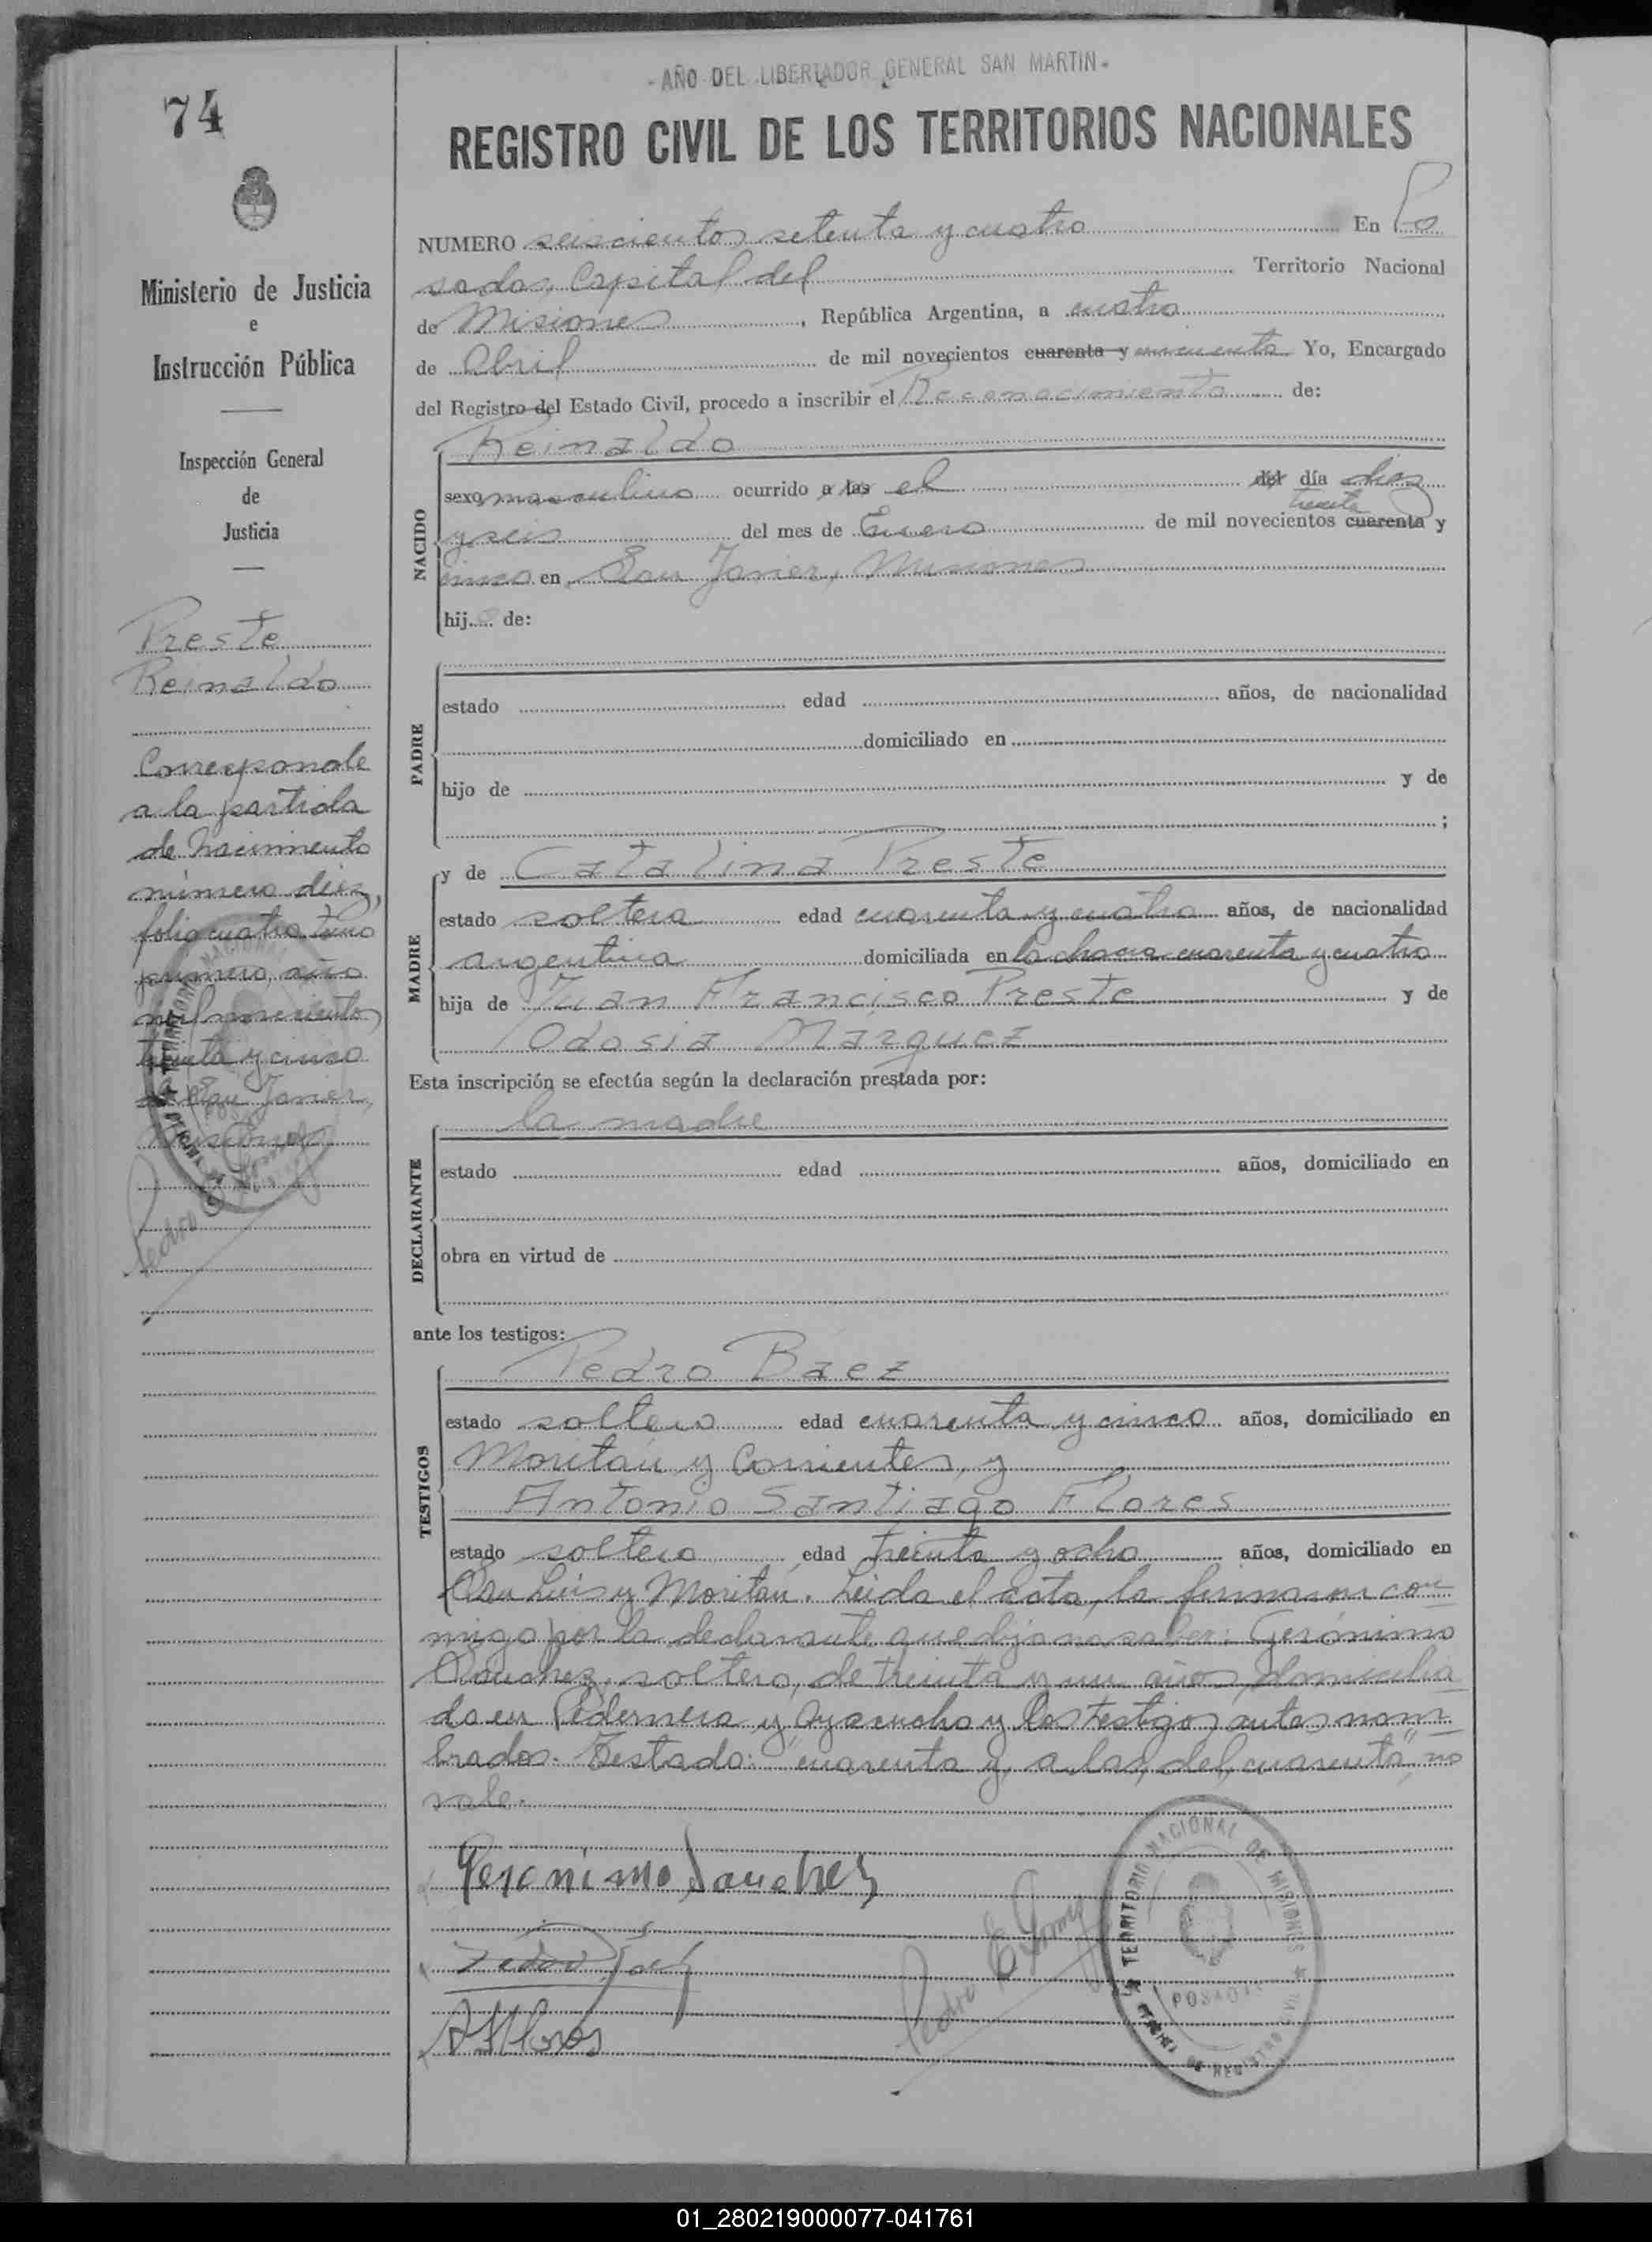 - AÑO DEL LIBERTADOR GENERAL SAN MARTIN -
74
REGISTRO CIVIL DE LOS TERRITORIOS NACIONALES
Ministerio de Justicia
e
Instrucción Pública
Inspección General
de
Justicia
Preste
Reinaldo
Corresponde
a la partida
de nacimiento
número diez,
folio cuatro, tomo
primero, año
mil novecientos
treinta y cinco
de San Javier,
Misiones
NUMERO seiscientos setenta y cuatro En Po
sadas, Capital del Territorio Nacional
de Misiones, República Argentina, a cuatro
de Abril de mil novecientos cuarenta y cincuenta Yo, Encargado
del Registro del Estado Civil, procedo a inscribir el Reconocimiento de:
Reinaldo
NACIDO
sexo masculino ocurrido a las el del día diez
treinta
y seis del mes de Enero de mil novecientos cuarenta y
cinco en San Javier, Misiones
hijo de:
PADRE
estado edad años, de nacionalidad
domiciliado en
hijo de y de
;
MADRE
y de Catalina Preste
estado soltera edad cuarenta y cuatro años, de nacionalidad
argentina domiciliada en la chacra cuarenta y cuatro
hija de Juan Francisco Preste y de
Odosia Marquez
Esta inscripción se efectúa según la declaración prestada por:
la madre
DECLARANTE
estado edad años, domiciliado en
obra en virtud de
ante los testigos:
TESTIGOS
Pedro Baez
estado soltero edad cuarenta y cinco años, domiciliado en
Moritán y Corrientes, y
Antonio Santiago Flores
estado soltero edad treinta y ocho años, domiciliado en
San Luis y Moritán. Leida el acta, la firmaron con
migo por la declarante que dijo no saber: Gerónimo
Sanchez, soltero, de treinta y un años, domicilia
do en Pedernera y Ayacucho y los testigos antes nom
brados. Testado: "cuarenta y, a las, del, cuarenta", no
vale.
Geronimo Sanchez
Pedro Baez
A S Flores
Pedro E Gomez
TERRITORIO NACIONAL DE MISIONES
POSADAS
OFICINA DE REGISTRO CIVIL
01_280219000077-041761